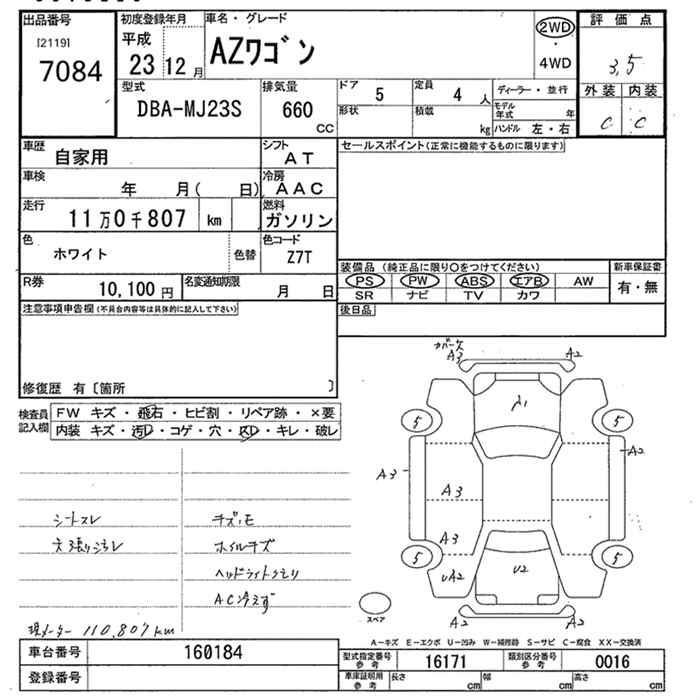 出品番号
[2119]
7084
初度登録年月
平成
23 12 月
車名・グレード
AZワゴン
2WD
・
4WD
評価点
3,5
外装 内装
C C
型式
DBA-MJ23S
排気量
660
CC
ドア
5
定員
4 人
形状
積載
kg
ディーラー・並行
モデル年式
年
ハンドル 左・右
車歴
自家用
シフト
AT
車検
年 月( 日)
冷房
AAC
走行
11万0千807 km
燃料
ガソリン
色
ホワイト
色替
色コード
Z7T
R券
10,100 円
名変通知期限
月 日
セールスポイント(正常に機能するものに限ります)
装備品 (純正品に限り○をつけてください)
PS PW ABS エアB AW
SR ナビ TV カワ
新車保証書
有・無
後日品
注意事項申告欄(不具合内容等は具体的に記入して下さい)
修復歴 有〔箇所 〕
検査員記入欄
FW キズ・飛石・ヒビ割・リペア跡・×要
内装 キズ・汚レ・コゲ・穴・スレ・キレ・破レ
シートスレ
天張りヨゴレ
キズ、モ
ホイルキズ
ヘッドライトくもり
AC冷えず
現メーター 110,807km
カバー欠
A3
A2
5
5
A3
A2
A3
A3
5
5
UA2
U2
A2
A2
スペア
A-キズ E-エクボ U-凹み W-補修跡 S-サビ C-腐食 XX-交換済
車台番号
160184
登録番号
型式指定番号
参考
16171
類別区分番号
参考
0016
車庫証明用
参考
長さ
cm
幅
cm
高さ
cm